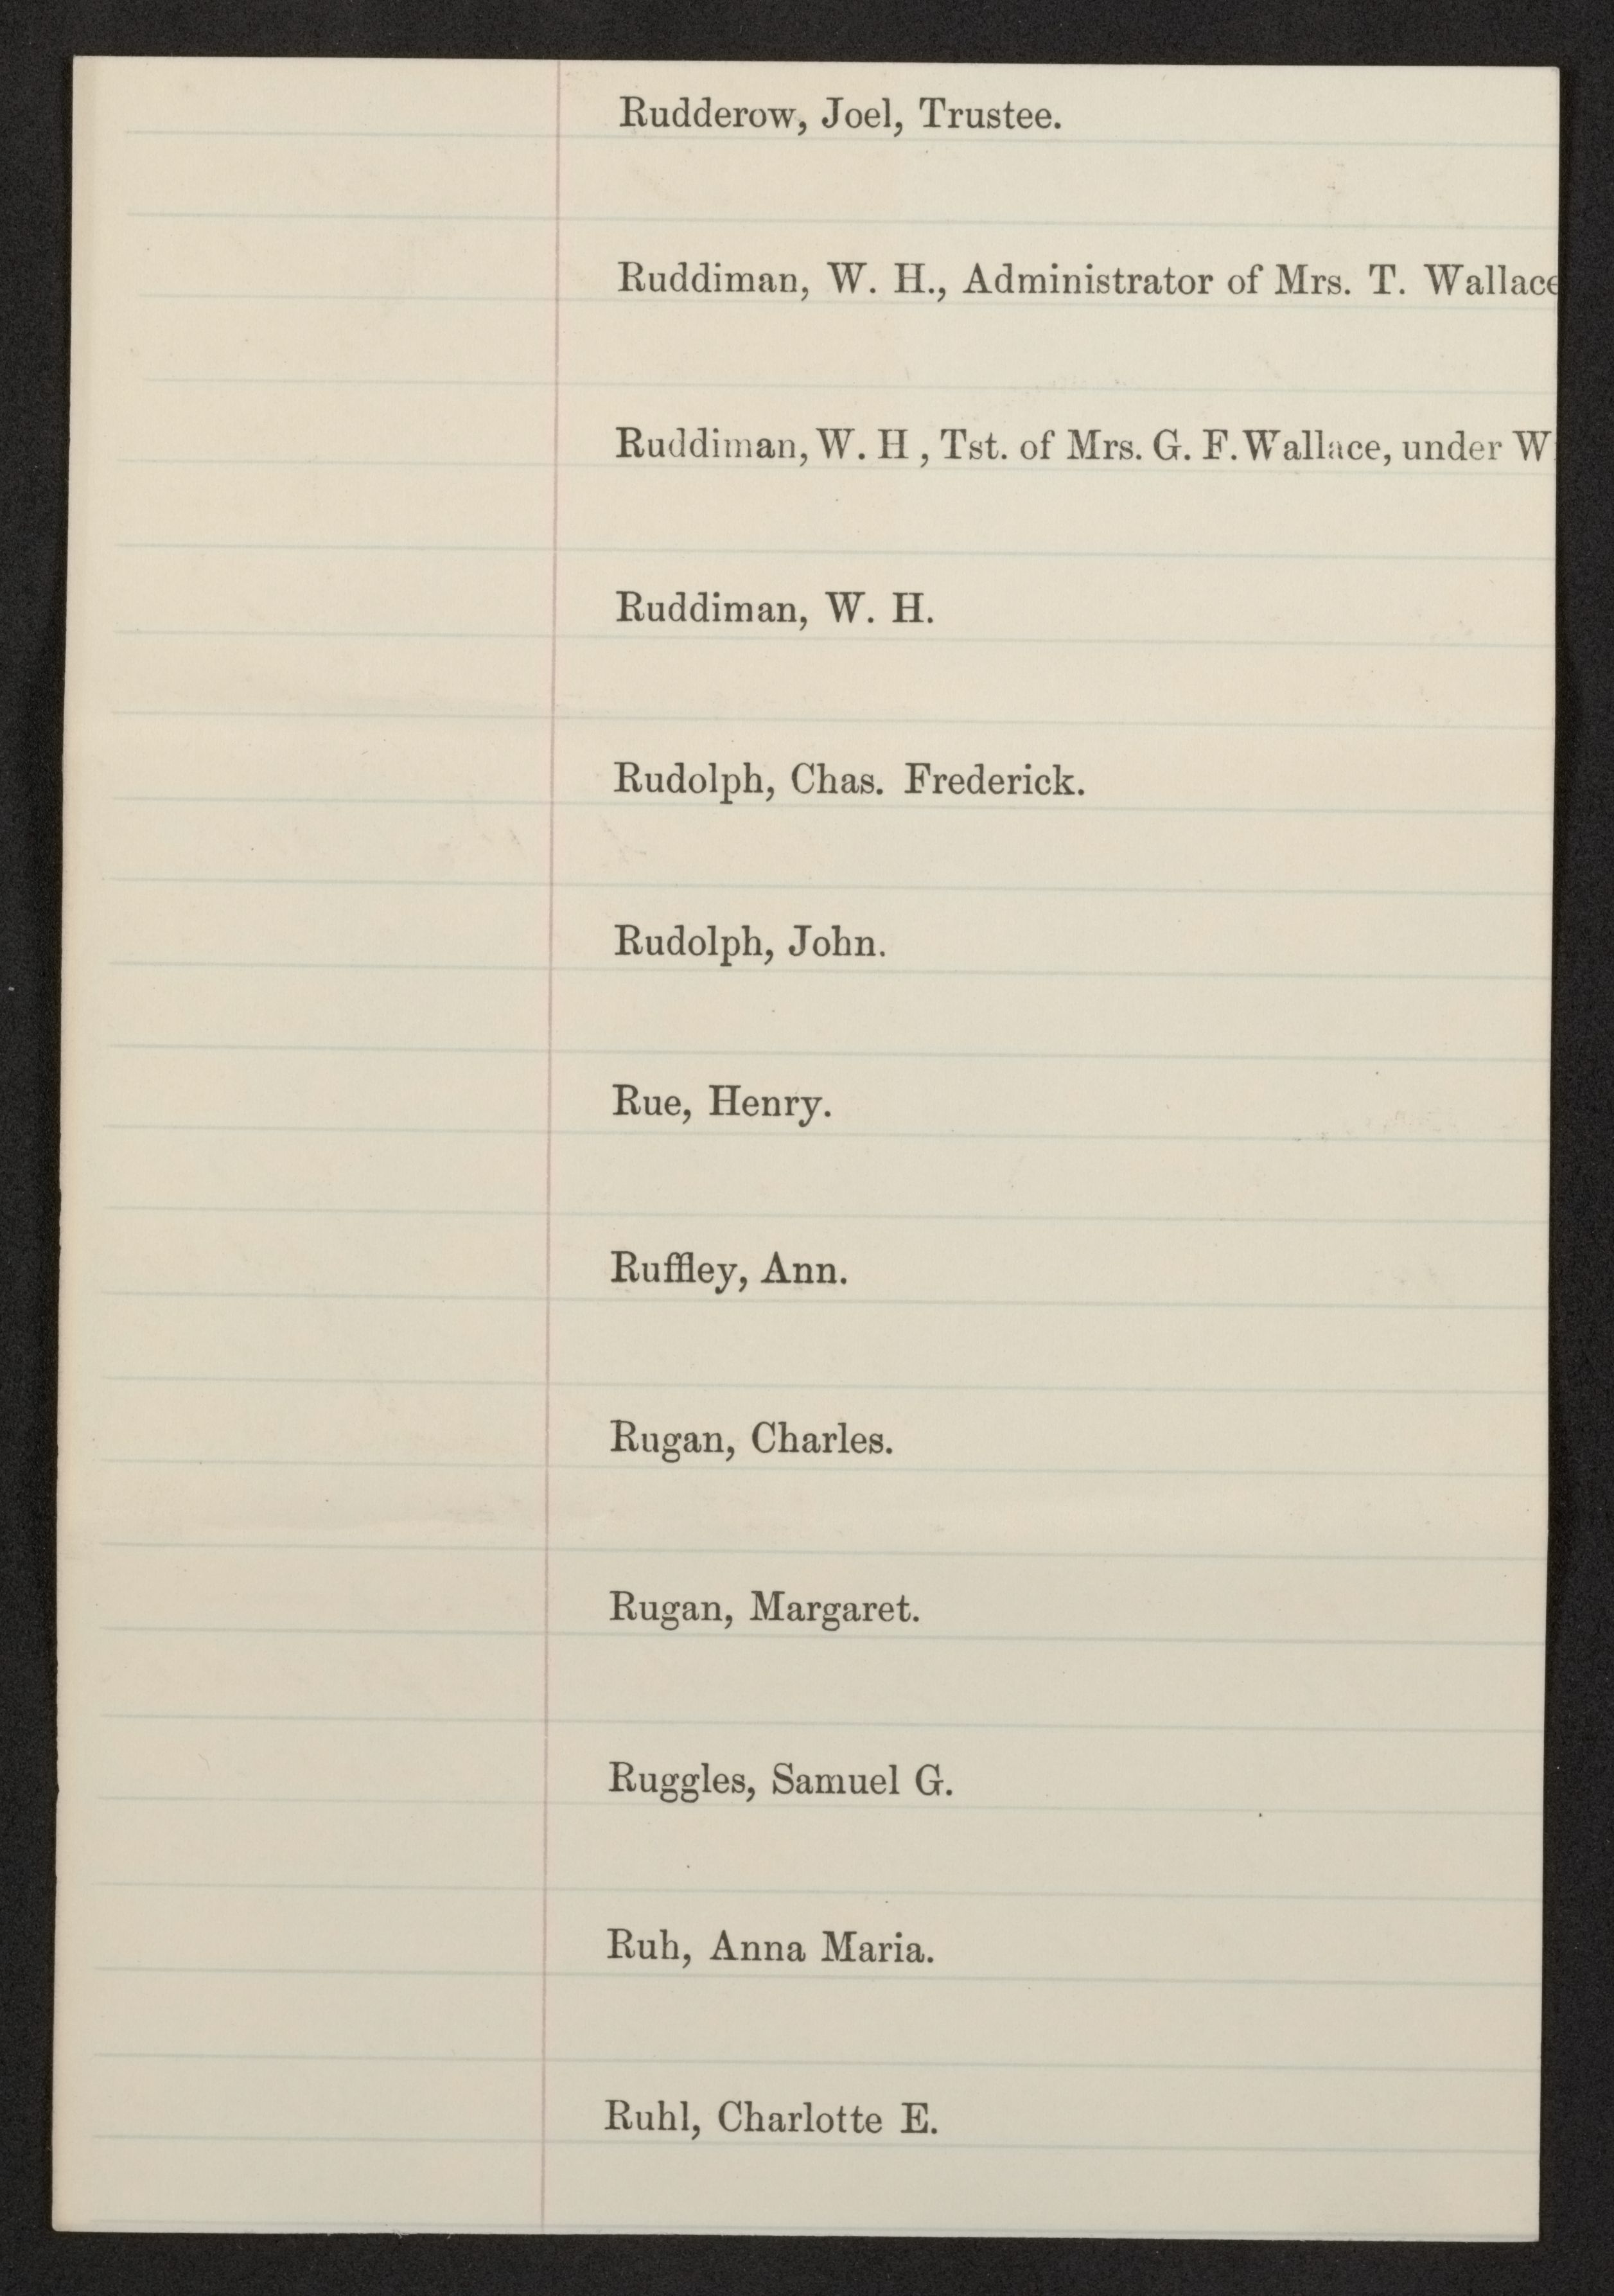 Rudderow, Joel, Trustee.
Ruddiman, W. H., Administrator of Mrs. T. Wallace
Ruddiman, W. H , Tst. of Mrs. G. F. Wallace, under W
Ruddiman, W. H.
Rudolph, Chas. Frederick.
Rudolph, John.
Rue, Henry.
Ruffley, Ann.
Rugan, Charles.
Rugan, Margaret.
Ruggles, Samuel G.
Ruh, Anna Maria.
Ruhl, Charlotte E.